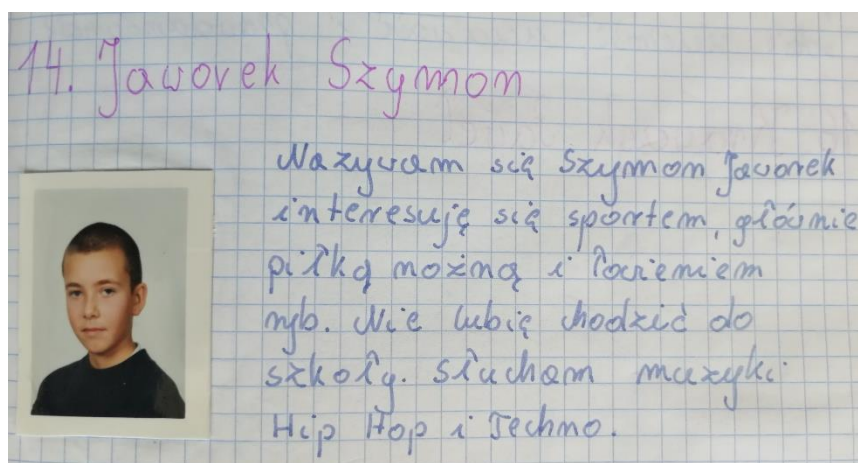 14. Jaworek Szymon
Nazywam się Szymon Jaworek
interesuję się sportem, głównie
piłką nożną i łowieniem
ryb. Nie lubię chodzić do
szkoły. Słucham muzyki
Hip Hop i Techno.